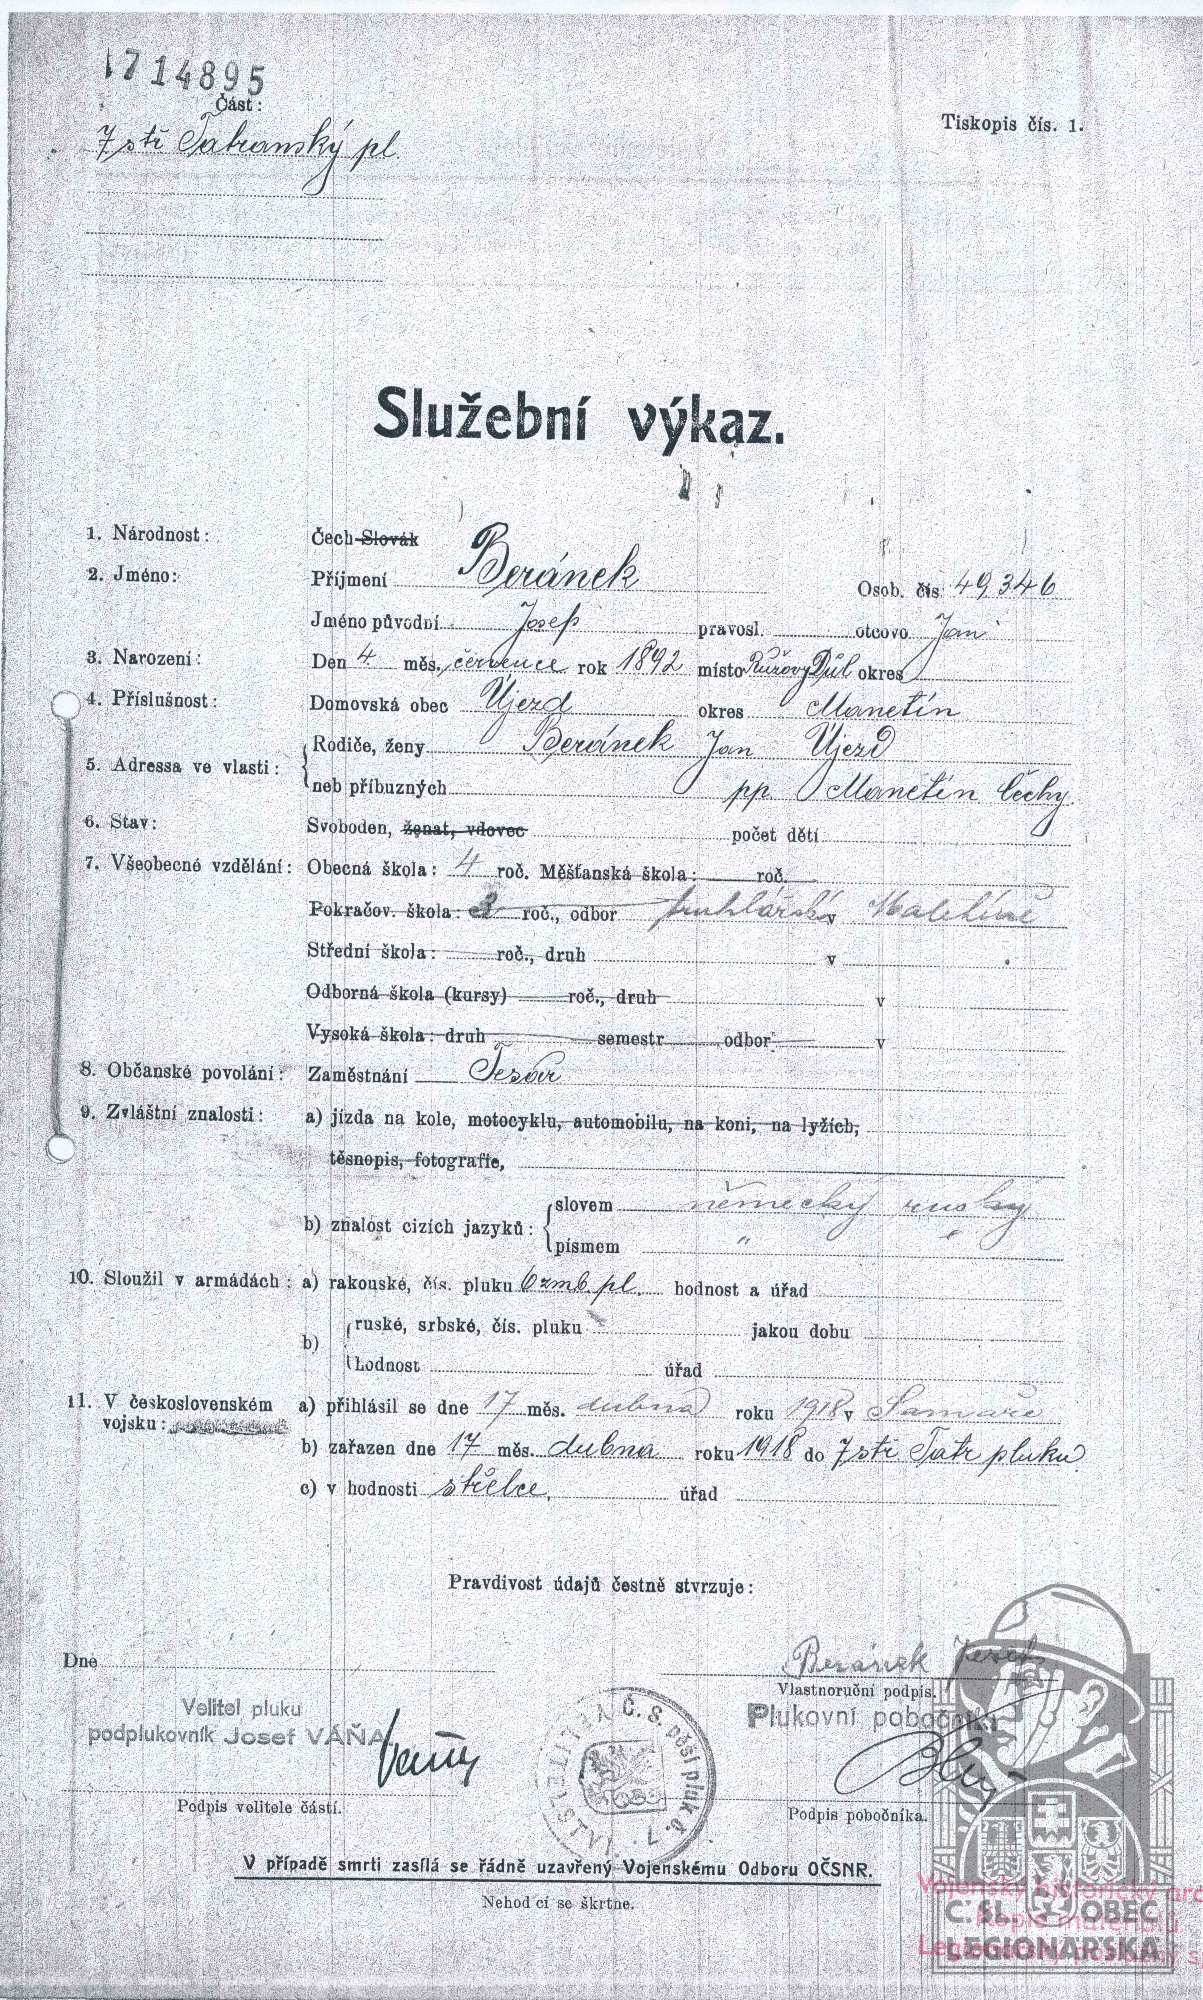 1714895
Část:
7 stř Tatranský pl.
Tiskopis čís. 1.
Služební výkaz.
1. Národnost: Čech Slovák
2. Jméno: Příjmení Beránek Osob. čís. 49346
Jméno původní Josef pravosl. otcovo Jan
3. Narození: Den 4. měs. července rok 1892 místo Růžový Důl okres
4. Příslušnost: Domovská obec Újezd okres Manetín
5. Adressa ve vlasti: Rodiče, ženy Beránek Jan Újezd
neb příbuzných pp Manetín Čechy
6. Stav: Svoboden, ženat, vdovec počet dětí
7. Všeobecné vzdělání: Obecná škola: 4 roč. Měšťanská škola: roč.
Pokračov. škola: 3 roč., odbor truhlářský v
Střední škola: roč., druh v
Odborná škola (kursy) roč., druh v
Vysoká škola: druh semestr odbor v
8. Občanské povolání: Zaměstnání Tesař
9. Zvláštní znalosti: a) jízda na kole, motocyklu, automobilu, na koni, na lyžích,
těsnopis, fotografie,
b) znalost cizích jazyků: slovem německy rusky
písmem " "
10. Sloužil v armádách: a) rakouské, čís. pluku 6 zmb. pl. hodnost a úřad
b) ruské, srbské, čís. pluku jakou dobu
hodnost úřad
11. V československém a) přihlásil se dne 17 měs. dubna roku 1918 v Samaře
vojsku: b) zařazen dne 17 měs. dubna roku 1918 do 7 stř Tatr pluku
c) v hodnosti střelce, úřad
Pravdivost údajů čestně stvrzuje:
Dne
Beránek Josef
Vlastnoruční podpis.
Velitel pluku
podplukovník Josef VÁŇA.
Váňa
Podpis velitele části.
VELITELSTVÍ Č. S. pěší pluk č. 7.
Plukovní pobočník
Podpis pobočníka.
V případě smrti zasílá se řádně uzavřený Vojenskému Odboru OČSNR.
Nehodící se škrtne.
Vojenský historický
Kopie materiálu
Č. SL. OBEC
LEGIONÁŘSKÁ